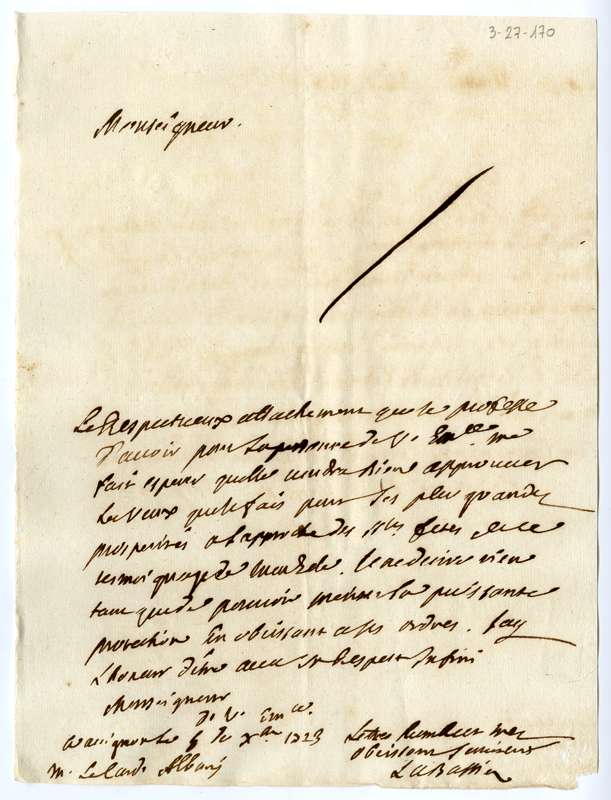 3-27-170
Monseigneur.
Le Respectueux attachement que Je professe
d'avoir pour la personne de V. Em.ce me
fait esperer quelle voudra bien approuver
les veux que Je fais pour les plus grandes
prosperites a l'approche des stes festes
tesmoignage de mon zele. Je ne desire rien
tant que de pouvoir meriter la puissante
protection En obeissant a ses ordres. Jay
Lhonneur d'être avec un Respect Infini
Monseigneur
De V. Em.ce
a avignon le 6 de Xbre 1723
Le tres humble et tres
obeissant serviteur
M. Le Card. Albani